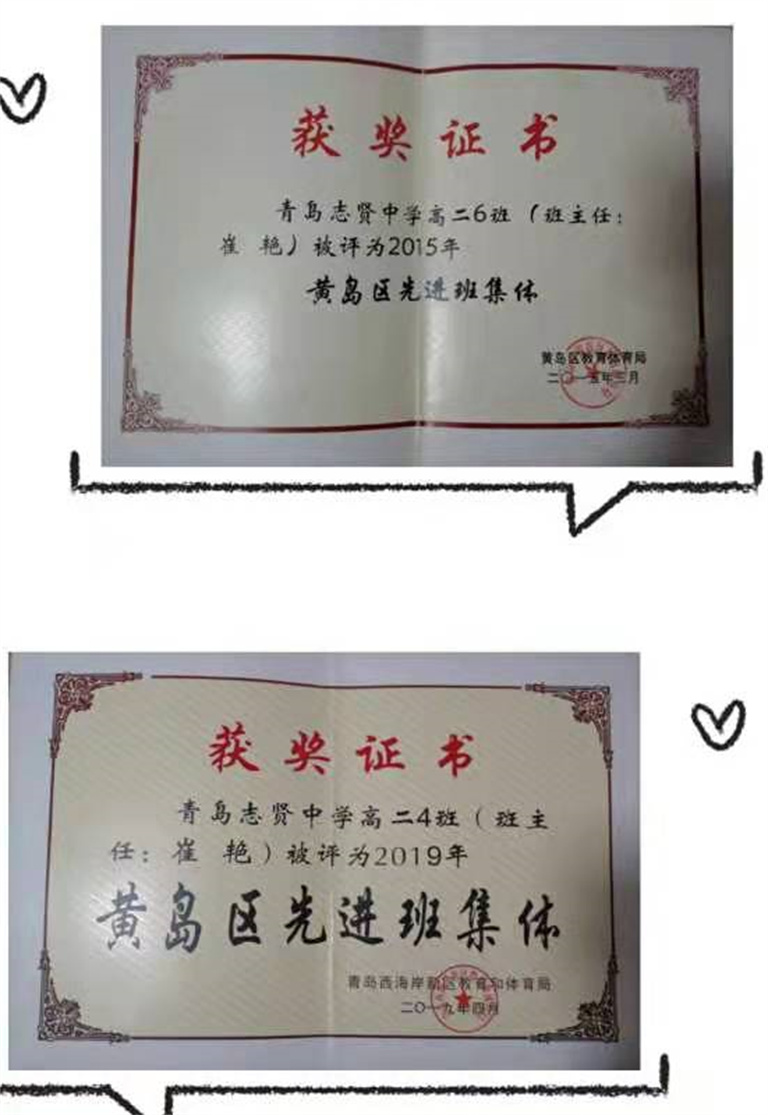 获奖证书
青岛志贤中学高二6班（班主任：
崔 艳）被评为2015年
黄岛区先进班集体
黄岛区教育体育局
二〇一五年三月
获奖证书
青岛志贤中学高二4班（班主
任：崔 艳）被评为2019年
黄岛区先进班集体
青岛西海岸新区教育和体育局
二〇一九年四月